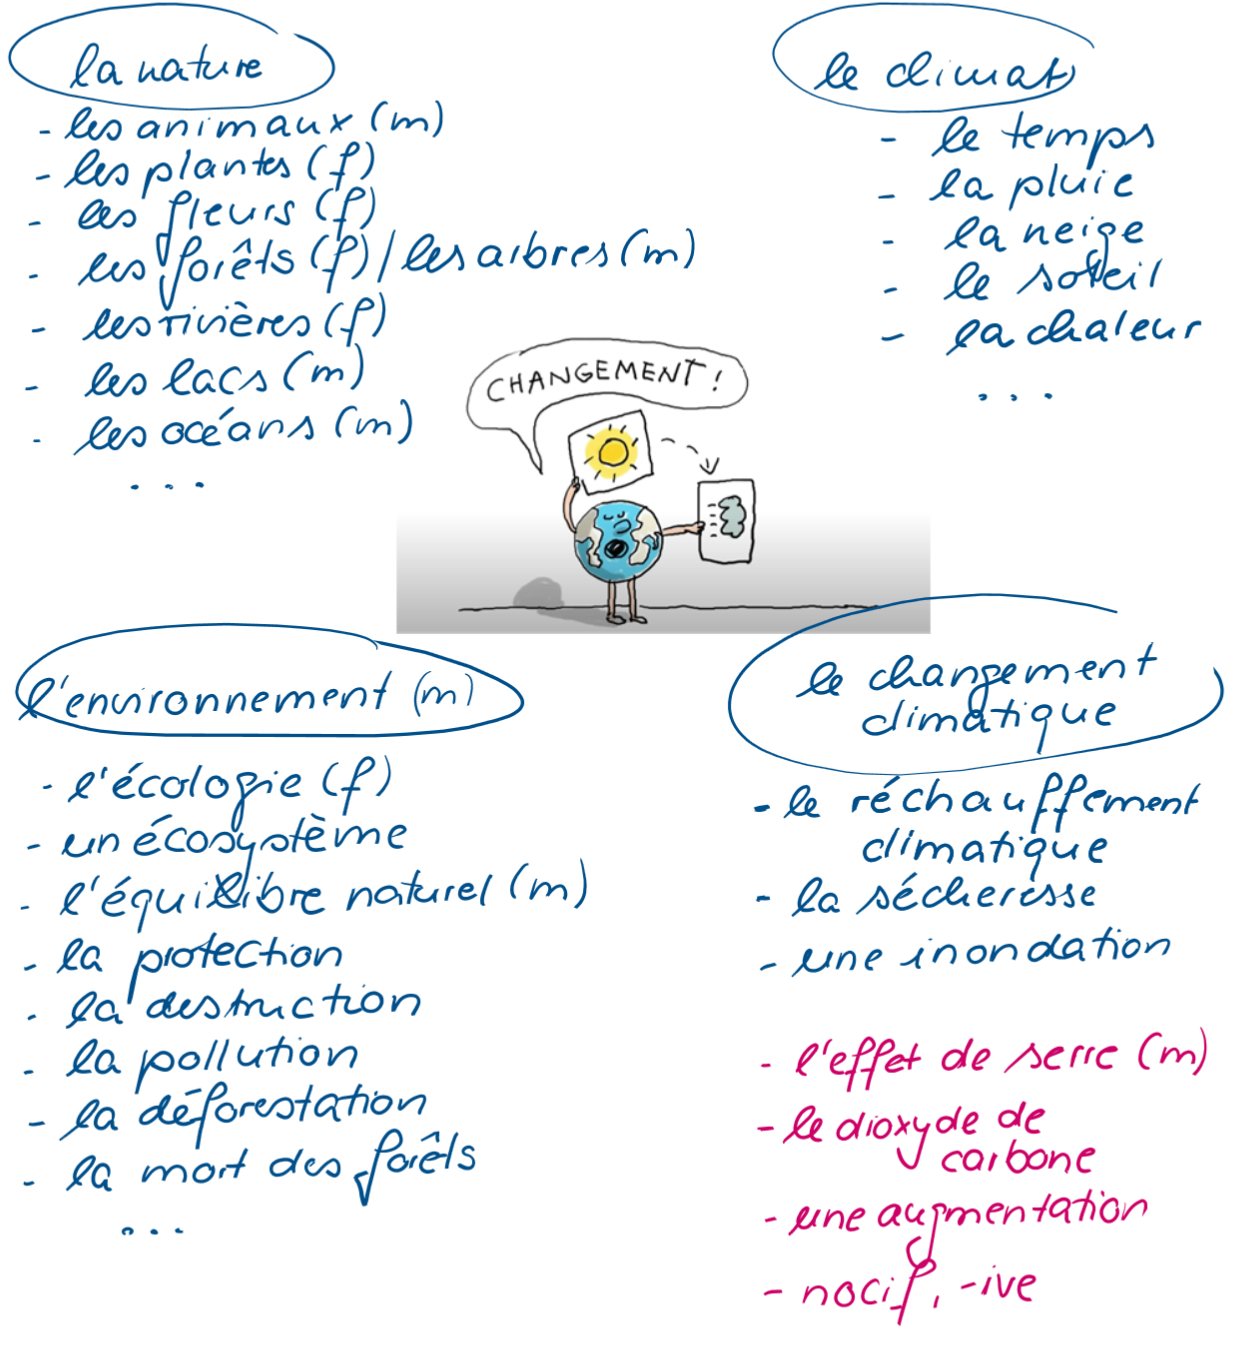 la nature
- les animaux (m)
- les plantes (f)
- les fleurs (f)
- les forêts (f) / les arbres (m)
- les rivières (f)
- les lacs (m)
- les océans (m)
...
le climat
- le temps
- la pluie
- la neige
- le soleil
- la chaleur
...
CHANGEMENT !
l'environnement (m)
- l'écologie (f)
- un écosystème
- l'équilibre naturel (m)
- la protection
- la destruction
- la pollution
- la déforestation
- la mort des forêts
...
le changement
climatique
- le réchauffement
climatique
- la sécheresse
- une inondation
- l'effet de serre (m)
- le dioxyde de
carbone
- une augmentation
- nocif, -ive